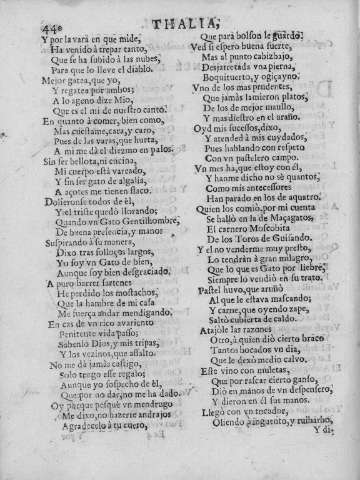 440
THALIA,
Y por la vara en que mide,
Ha venido à trepar tanto,
Que se ha subido à las nubes,
Para que lo lleve el diablo.
Mejor gatea, que yo,
Y regatea por ambos;
A lo ageno dize Mio,
Que es el mi de nuestro canto.
En quanto à comer, bien como,
Mas cuestame, cara, y caro,
Pues de las varas, que hurta,
A mi me dà el diezmo en palos.
Sin ser bellota, ni encina,
Mi cuerpo està vareado,
Y sin ser gato de algalia,
A açotes me tienen flaco.
Dolieronse todos de èl,
Y el triste quedò llorando;
Quando vn Gato Gentilhombre,
De buena presencia, y manos
Suspirando à su monera,
Dixo tras sollozos largos,
Yo soy vn Gato de bien,
Aunque soy bien desgraciado.
A puro barrer sartenes
He perdido los mostachos,
Que la hambre de mi casa
Me fuerça andar mendigando.
En cas de vn rico avariento
Penitente vida passo;
Sabenlo Dios, y mis tripas,
Y los vezinos, que assalto.
No me dà jamàs castigo,
Solo tengo esse regalo;
Aunque yo sospecho de èl,
Que por no dar, no me ha dado.
Oy porque pesquè vn mendrugo
Me dixo, no hazerte andrajos
Agradecelo à tu cuero,
Que parà bolson le guardo.
Ved si espero buena suerte,
Mas al punto cabizbajo,
Desjarretada vna pierna,
Boquituerto, y ogiçayno.
Vno de los mas prudentes,
Que jamàs lamieron platos,
De los de mejor maullo,
Y mas diestro en el araño.
Oyd mis sucessos, dixo,
Y atended à mis cuydados,
Pues hablando con respeto
Con vn pastelero campo.
Vn mes ha, que estoy con èl,
Y hanme dicho no sè quantos,
Como mis antecessores
Han parado en los de aquatro.
Quien los comiò, por mi cuenta
Se hallò en la de Maçagatos;
El carnero Moscobita
De los Toros de Guisando.
Y el no venderme muy presto,
Lo tendràn à gran milagro,
Que lo que es Gato por liebre,
Siempre lo vendiò en su trato.
Pastel huvo, que arañò
Al que le estava mascando;
Y carne, que oyendo zape,
Saltò cubierta de caldo.
Atajòle las razones
Otro, à quien diò cierto braco
Tantos bocados vn dia,
Que le dexò medio calvo.
Este vino con muletas,
Que por rascar cierto ganso,
Diò en manos de vn despensero,
Y dieron en èl sus manos.
Llegò con vn tocador,
Oliendo à inguento, y ruibarbo,
Y di-